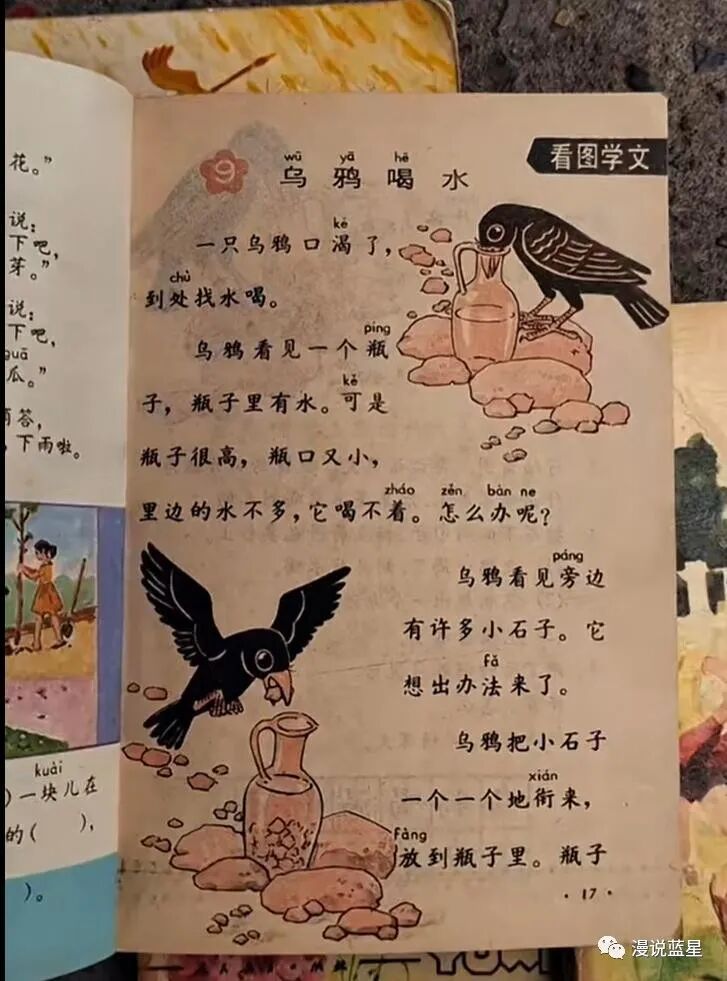 花。”
说：
下吧，
芽。”
说：
下吧，
guā
瓜。”
滴答，
下雨啦。
kuài
）一块儿在
的（　），
）。
看图学文
wū yā hē
9 乌鸦喝水
kě
一只乌鸦口渴了，
chù
到处找水喝。
píng
乌鸦看见一个瓶
kě
子，瓶子里有水。可是
瓶子很高，瓶口又小，
zháo zěn bàn ne
里边的水不多，它喝不着。怎么办呢？
páng
乌鸦看见旁边
有许多小石子。它
fǎ
想出办法来了。
乌鸦把小石子
xián
一个一个地衔来，
fàng
放到瓶子里。瓶子
·17·
漫说蓝星